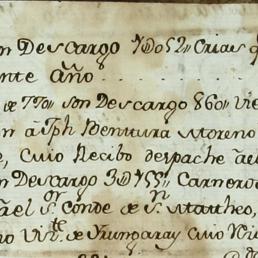 on Descargo 1Do52 Crias q
ente Año
de 770 son Descargo 860 Vie
n a Jph Bentura Moreno
e, cuio Recibo despache a el
n Descargo 3D Carneros
a el Sr. Conde de Sn Mattheo,
no de Yrungaray cuio